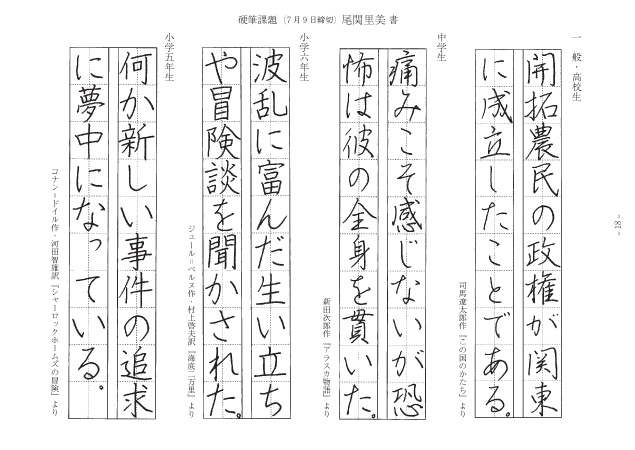 硬筆課題（７月９日締切）尾関里美 書
一般・高校生
開拓農民の政権が関東
に成立したことである。
司馬遼太郎作『この国のかたち』より
中学生
痛みこそ感じないが恐
怖は彼の全身を貫いた。
新田次郎作『アラスカ物語』より
小学六年生
波乱に富んだ生い立ち
や冒険談を聞かされた。
ジュール＝ベルヌ作・村上啓夫訳『海底二万里』より
小学五年生
何か新しい事件の追求
に夢中になっている。
コナン＝ドイル作・河田智雄訳『シャーロックホームズの冒険』より